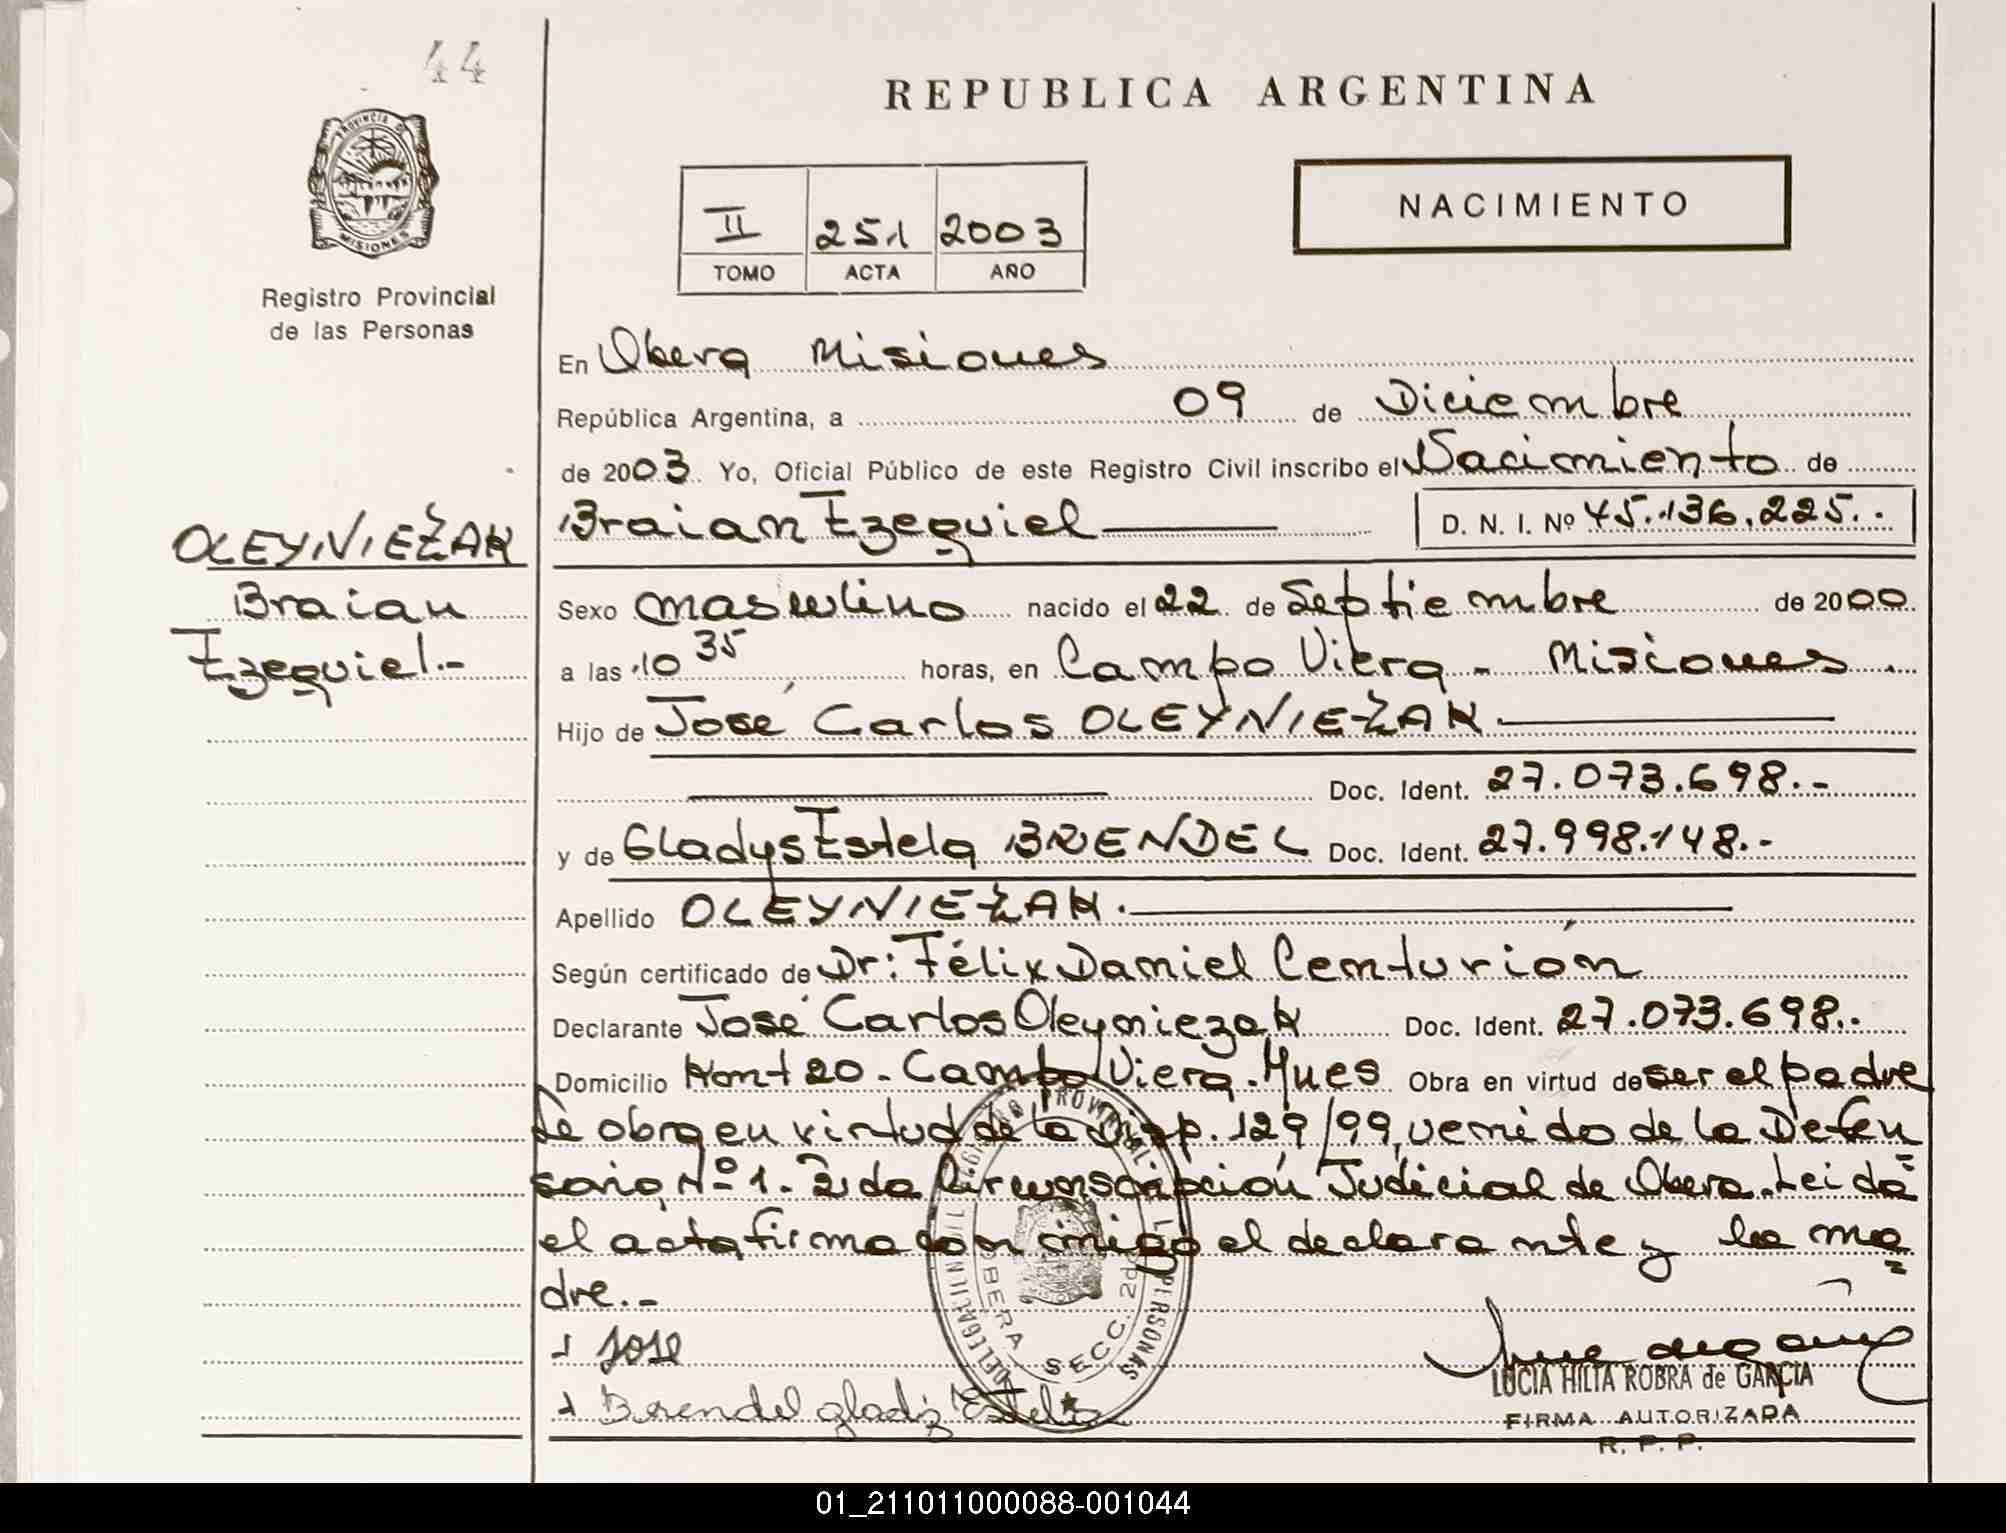 44
REPUBLICA ARGENTINA
PROVINCIA DE
MISIONES
NACIMIENTO
II 251 2003
TOMO ACTA AÑO
Registro Provincial
de las Personas
En Obera Misiones
República Argentina, a 09 de Diciembre
de 2003. Yo, Oficial Público de este Registro Civil inscribo el Nacimiento de
Braian Ezequiel D. N. I. Nº 45.136.225..
OLEYNIEŻAK
Braian
Ezequiel.-
Sexo masculino nacido el 22 de Septiembre de 2000
a las 10 35 horas, en Campo Viera - Misiones.
Hijo de José Carlos OLEYNIEŻAK
Doc. Ident. 27.073.698.-
y de Gladys Estela BRENDEL Doc. Ident. 27.998.148.-
Apellido OLEYNIEŻAK.
Según certificado de Dr: Félix Daniel Centurión
Declarante José Carlos Oleyniezak Doc. Ident. 27.073.698..
Domicilio Km 20 - Campo Viera. Mnes Obra en virtud de ser el padre
Se obra en virtud de la Disp. 129/99, venido de la Defen
soria, Nº 1. 2da Circunscripción Judicial de Obera. Leida
el acta firma con migo el declarante y la ma
dre.-
José
Berendel gladiz Estela
DELEGACI REGISTRO PROVINCIAL DE LAS PERSONAS
OBERA SECC. 2da
LUCIA HILTA ROBRA de GARCIA
FIRMA AUTORIZADA
R. P. P.
01_211011000088-001044